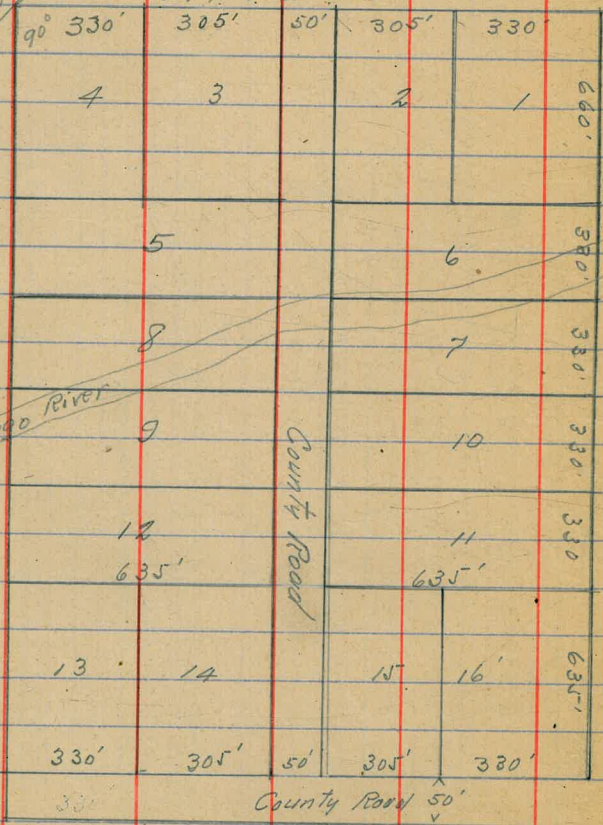 90° 330' 305' 50' 305' 330'
4 3 2 1 660'
5 6 330'
8 7 330'
River
9 10 330'
County Road
12 11 330
635' 635'
13 14 15 16 635'
330' 305' 50' 305' 330'
County Road 50'